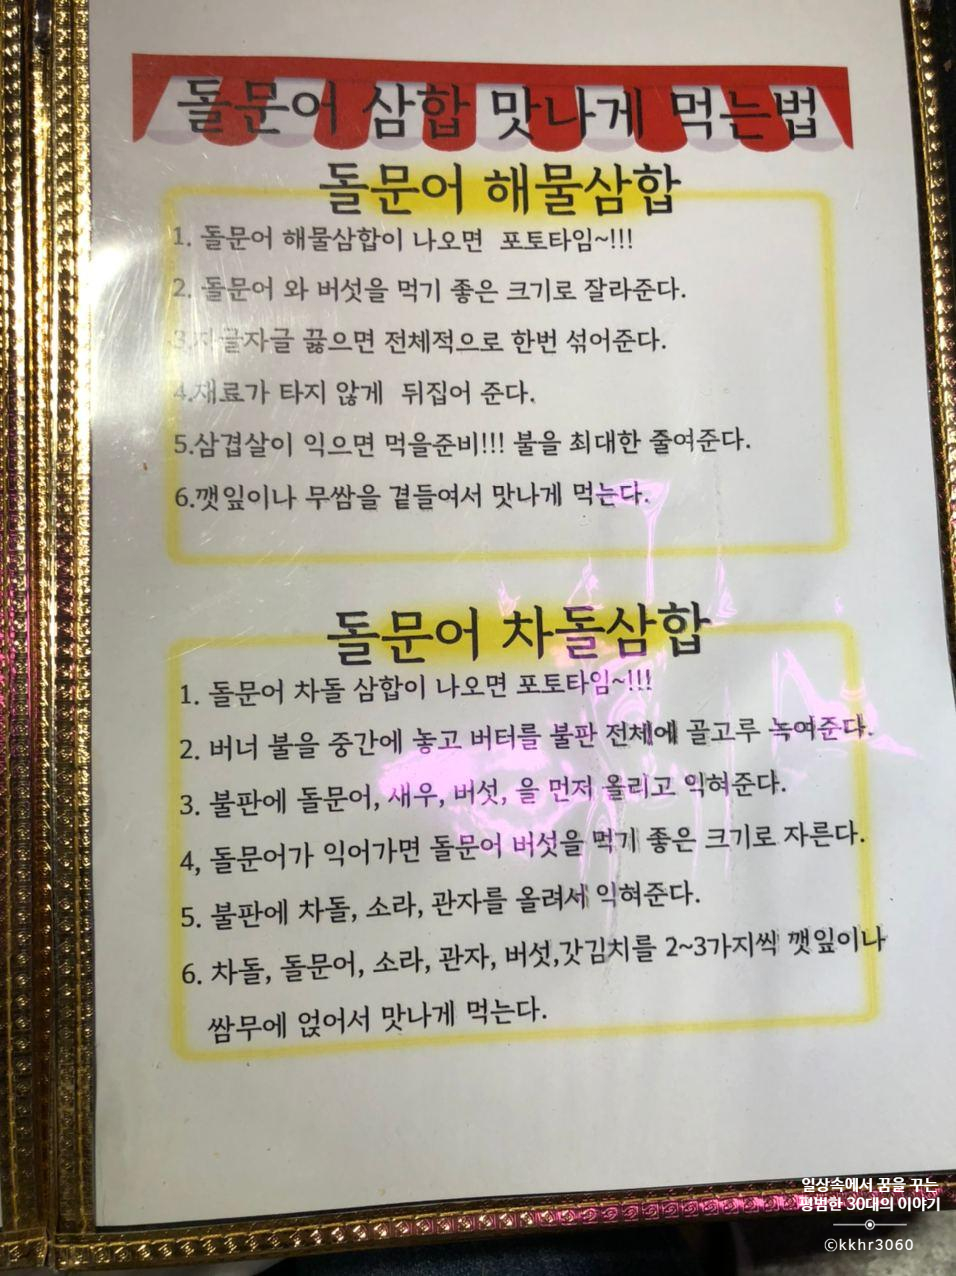 돌문어 삼합 맛나게 먹는법
돌문어 해물삼합
1. 돌문어 해물삼합이 나오면 포토타임~!!!
2. 돌문어 와 버섯을 먹기 좋은 크기로 잘라준다.
3.자글자글 끓으면 전체적으로 한번 섞어준다.
4.재료가 타지 않게 뒤집어 준다.
5.삼겹살이 익으면 먹을준비!!! 불을 최대한 줄여준다.
6.깻잎이나 무쌈을 곁들여서 맛나게 먹는다.
돌문어 차돌삼합
1. 돌문어 차돌 삼합이 나오면 포토타임~!!!
2. 버너 불을 중간에 놓고 버터를 불판 전체에 골고루 녹여준다.
3. 불판에 돌문어, 새우, 버섯, 을 먼저 올리고 익혀준다.
4, 돌문어가 익어가면 돌문어 버섯을 먹기 좋은 크기로 자른다.
5. 불판에 차돌, 소라, 관자를 올려서 익혀준다.
6. 차돌, 돌문어, 소라, 관자, 버섯,갓김치를 2~3가지씩 깻잎이나
쌈무에 얹어서 맛나게 먹는다.
일상속에서 꿈을 꾸는
평범한 30대의 이야기
©kkhr3060